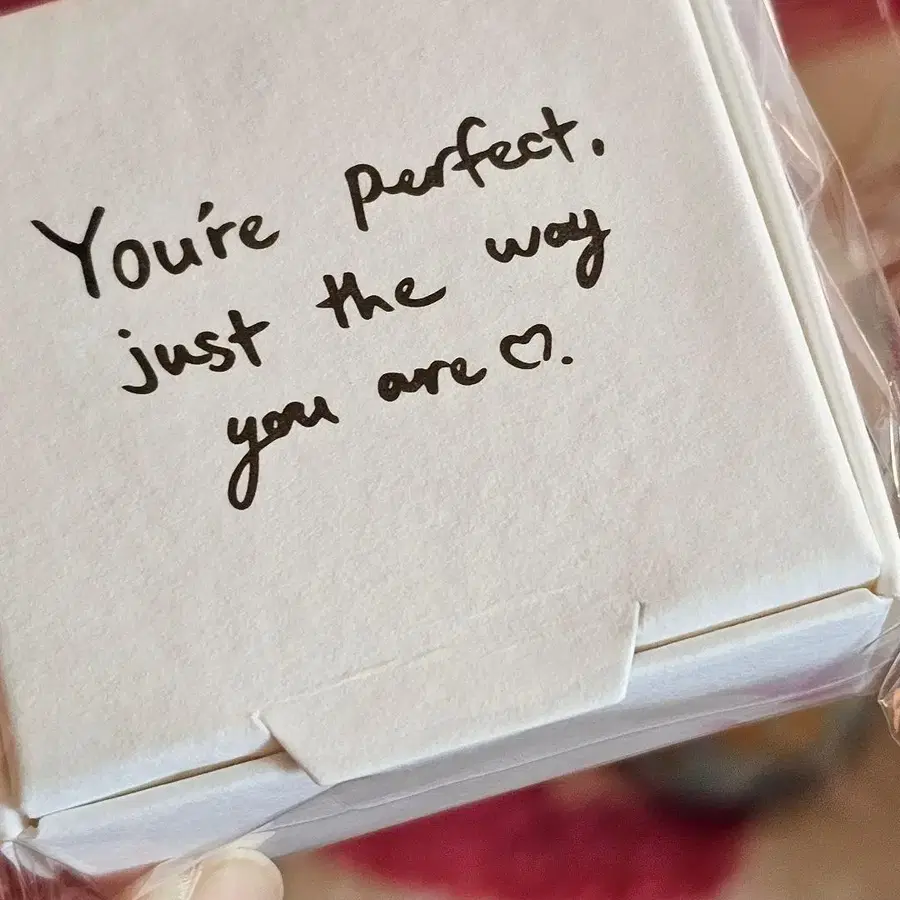 You're perfect.
just the way
you are ♡.